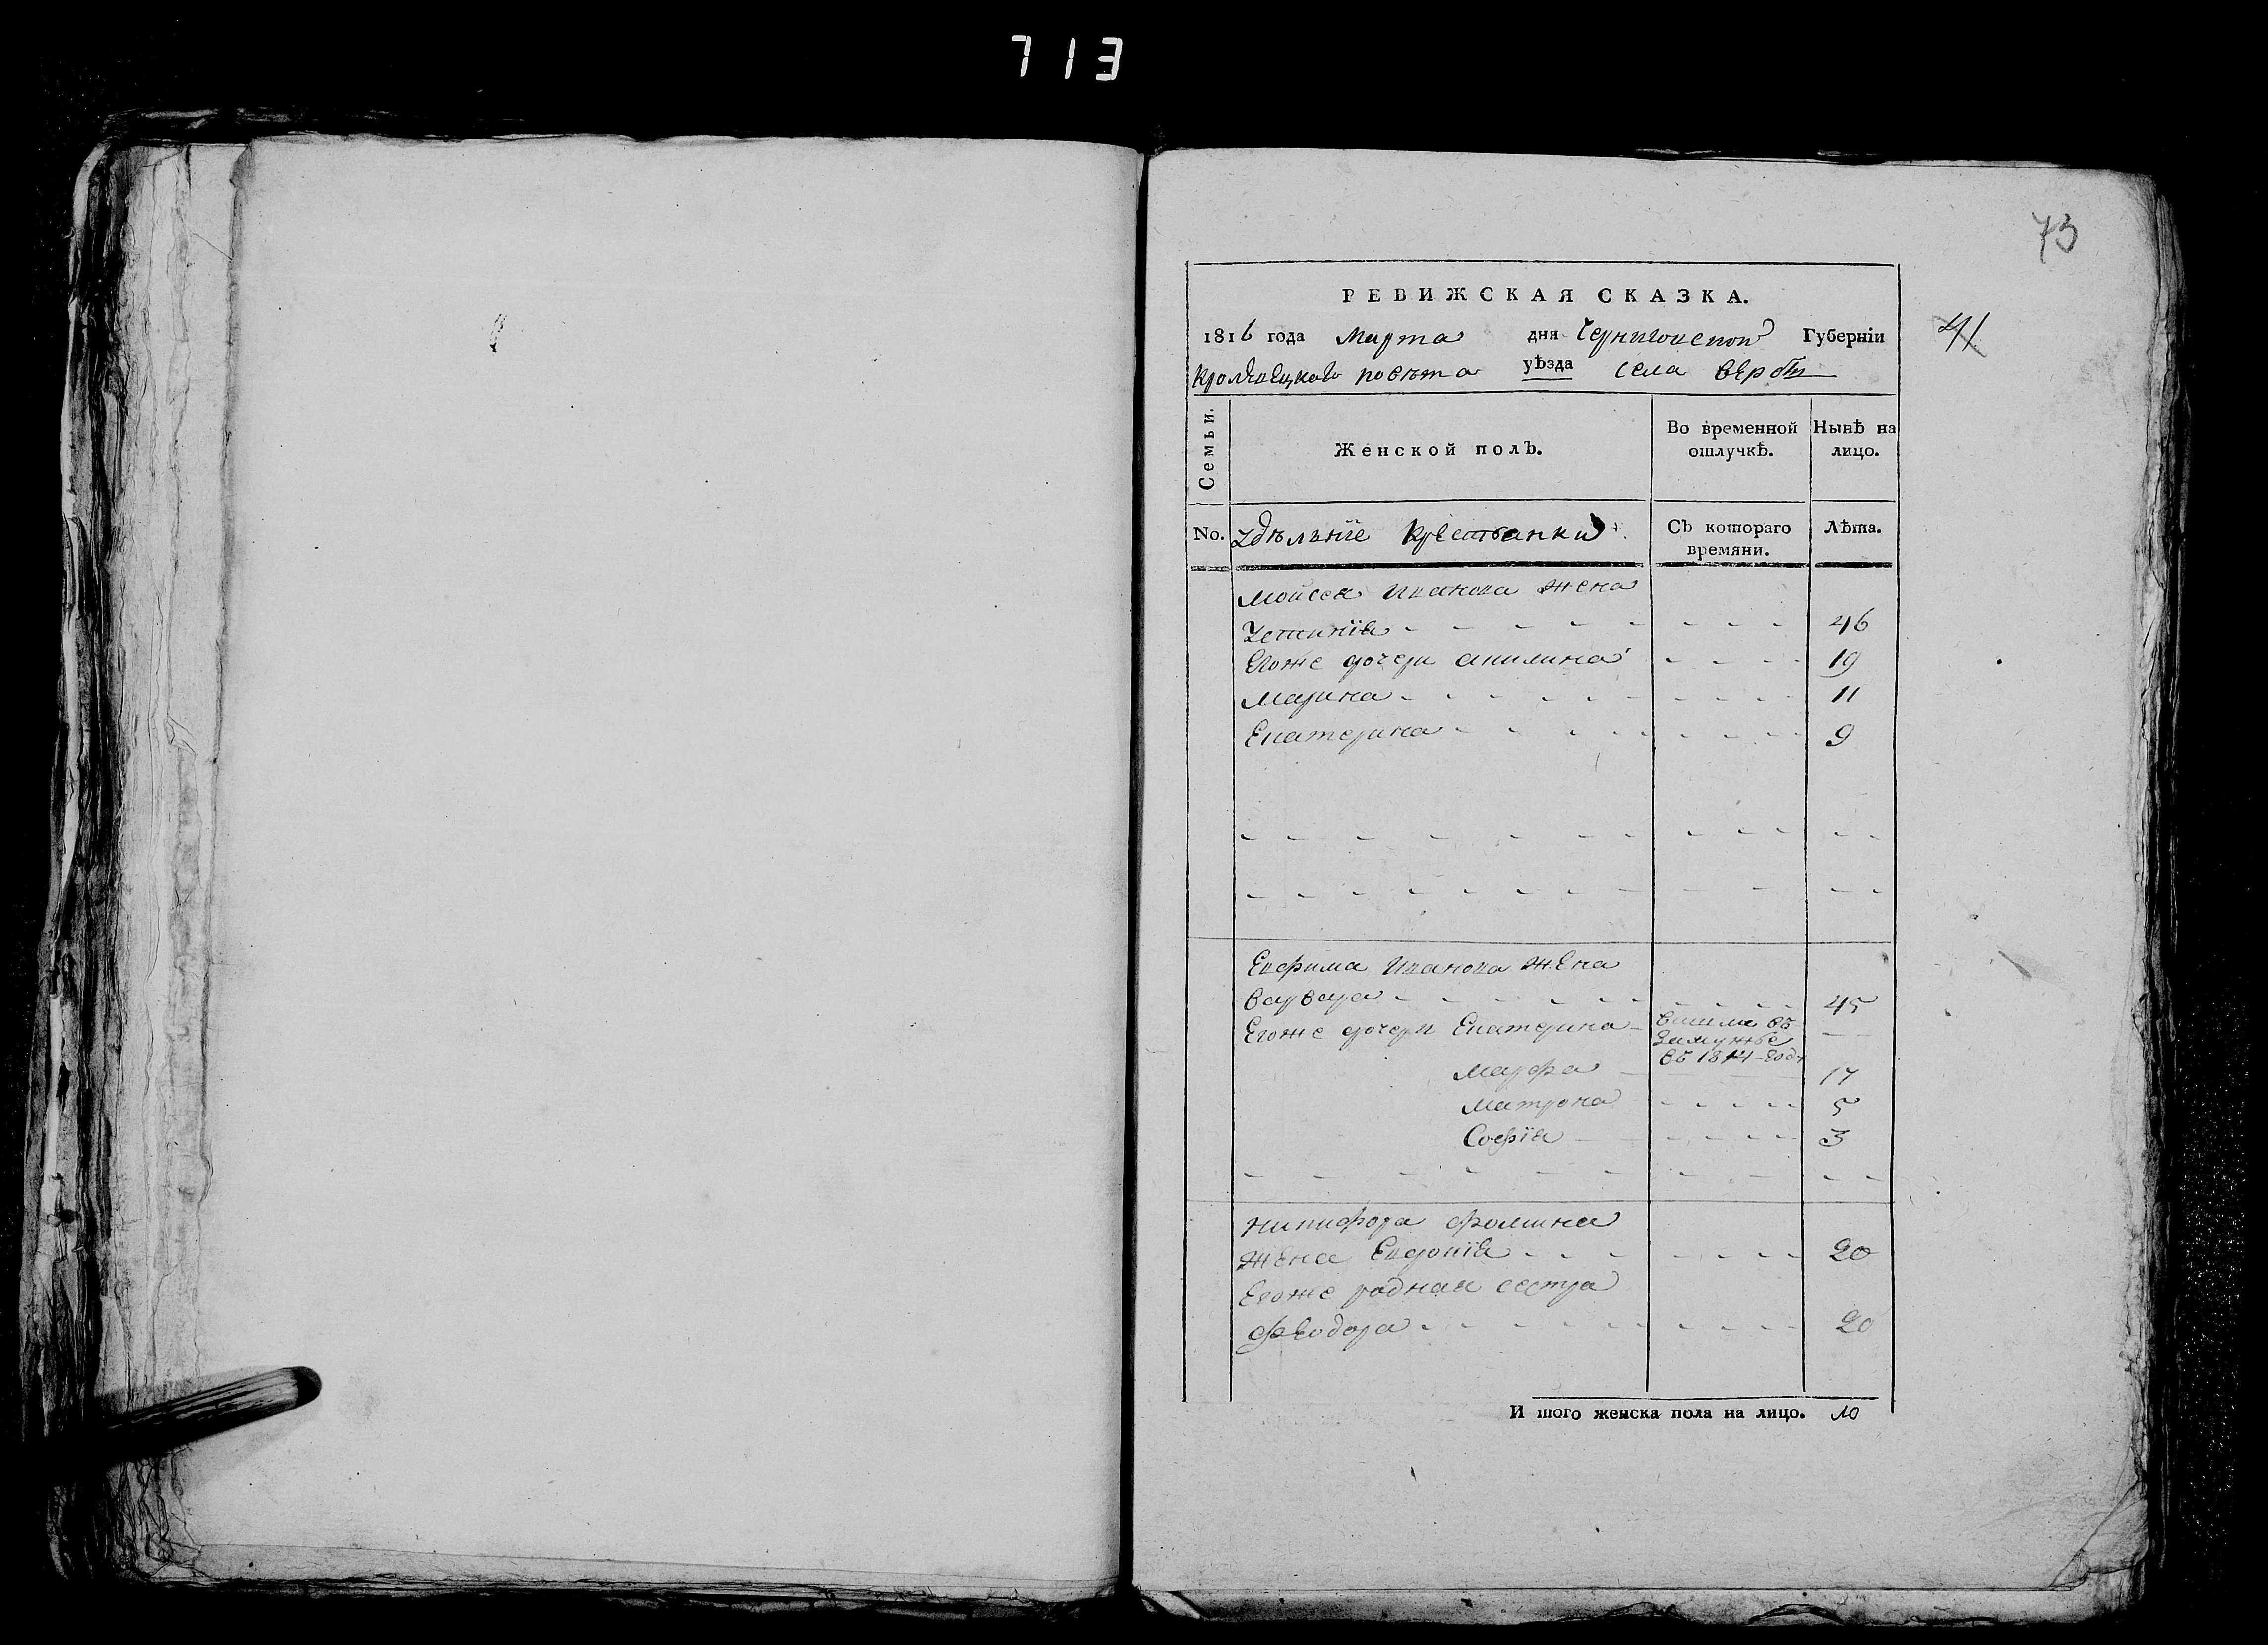 713
73
РЕВИЖСКАЯ СКАЗКА.
1816 года Марта дня Черниговской Губерніи
41
Кролевецкаго повѣта уѣзда села вербы
Семьи.
Женской полъ.
Во временной отлучкѣ.
Нынѣ на лицо.
No. удѣлніе Крестьянки
Съ котораго времяни.
Лѣта.
Мойсея Иванова жена
Устинїя 46
Егоже дочери акилина 19
Марина 11
Екатерина 9
Евфима Иванова жена
варвара 45
Егоже дочери Екатерина вишла въ замужье въ 1814 году
Марфа 17
Матрона 5
Софїя 3
Никифора Фомина
жена Евдокїя 20
Егоже родная сестра
Феодора 20
Итого женска пола на лицо. 10